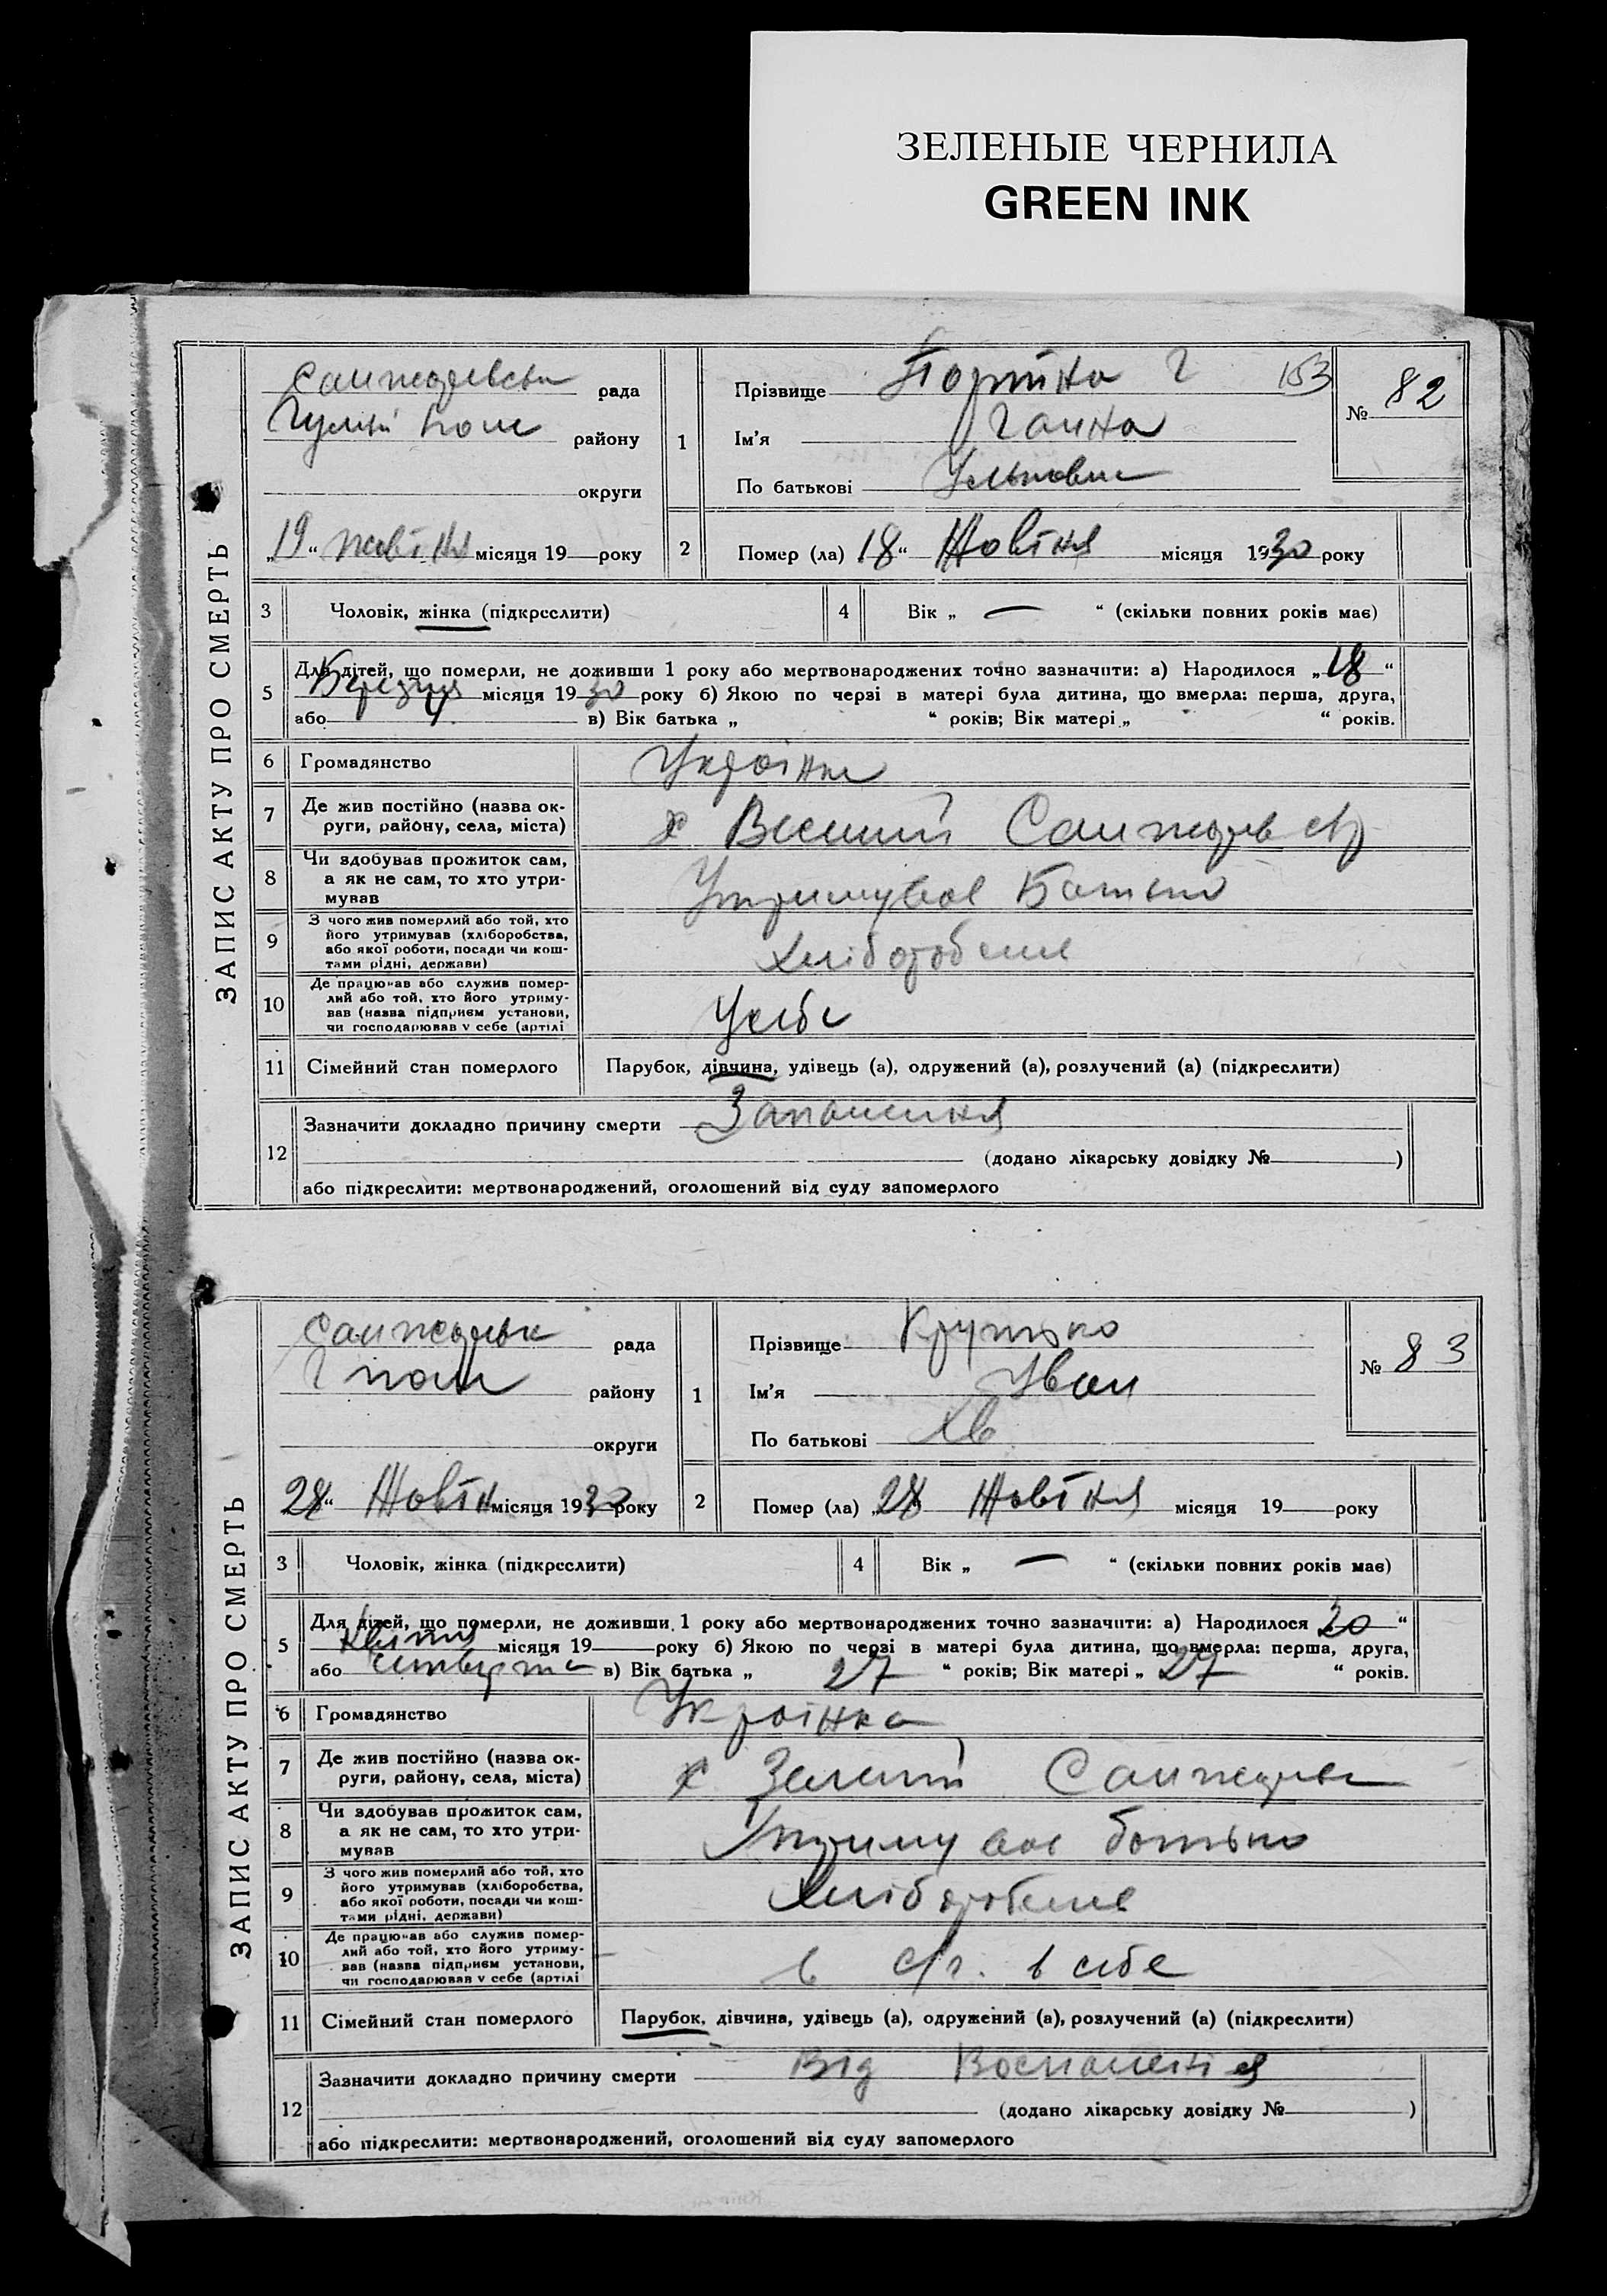 ЗЕЛЕНЫЕ ЧЕРНИЛА
GREEN INK
ЗАПИС АКТУ ПРО СМЕРТЬ
рада
району
округи
„19“ жовтня місяця 19 року
1
Прізвище Г 153
Ім’я Ганна
По батькові
№ 82
2
Помер (ла) 18“ Жовтня місяця 1930 року
3 Чоловік, жінка (підкреслити)
4 Вік „ — “ (скільки повних років має)
5
Для дітей, що померли, не доживши 1 року або мертвонароджених точно зазначити: а) Народилося „18“
Березня місяця 1930 року б) Якою по черзі в матері була дитина, що вмерла: перша, друга,
або 4 в) Вік батька „ “ років; Вік матері „ “ років.
6 Громадянство Українка
7 Де жив постійно (назва ок-
руги, району, села, міста)
х
8 Чи здобував прожиток сам,
а як не сам, то хто утри-
мував
Утримував Батько
9 З чого жив померлий або той, хто
його утримував (хліборобства,
або якої роботи, посади чи кош-
тами рідні, держави)
10 Де працював або служив помер-
лий або той, хто його утриму-
вав (назва підприєм установи,
чи господарював у себе (артілі
Усебе
11 Сімейний стан померлого Парубок, дівчина, удівець (а), одружений (а), розлучений (а) (підкреслити)
12
Зазначити докладно причину смерти Запалення
(додано лікарську довідку № )
або підкреслити: мертвонароджений, оголошений від суду запомерлого
ЗАПИС АКТУ ПРО СМЕРТЬ
рада
району
округи
28“ Жовтн місяця 1930 року
1
Прізвище Крутько
Ім’я Іван
По батькові Хв
№ 83
2
Помер (ла) „28 Жовтня місяця 19 року
3 Чоловік, жінка (підкреслити)
4 Вік „ — “ (скільки повних років має)
5
Для дітей, що померли, не доживши 1 року або мертвонароджених точно зазначити: а) Народилося 20“
Квітня місяця 19 року б) Якою по черзі в матері була дитина, що вмерла: перша, друга,
або в) Вік батька „ 27 “ років; Вік матері „ 27 “ років.
6 Громадянство Українка
7 Де жив постійно (назва ок-
руги, району, села, міста)
х Зелений
8 Чи здобував прожиток сам,
а як не сам, то хто утри-
мував
Утримував батько
9 З чого жив померлий або той, хто
його утримував (хліборобства,
або якої роботи, посади чи кош-
тами рідні, держави)
10 Де працював або служив помер-
лий або той, хто його утриму-
вав (назва підприєм установи,
чи господарював у себе (артілі
в с/г. в себе
11 Сімейний стан померлого Парубок, дівчина, удівець (а), одружений (а), розлучений (а) (підкреслити)
12
Зазначити докладно причину смерти Від Воспаленія
(додано лікарську довідку № )
або підкреслити: мертвонароджений, оголошений від суду запомерлого